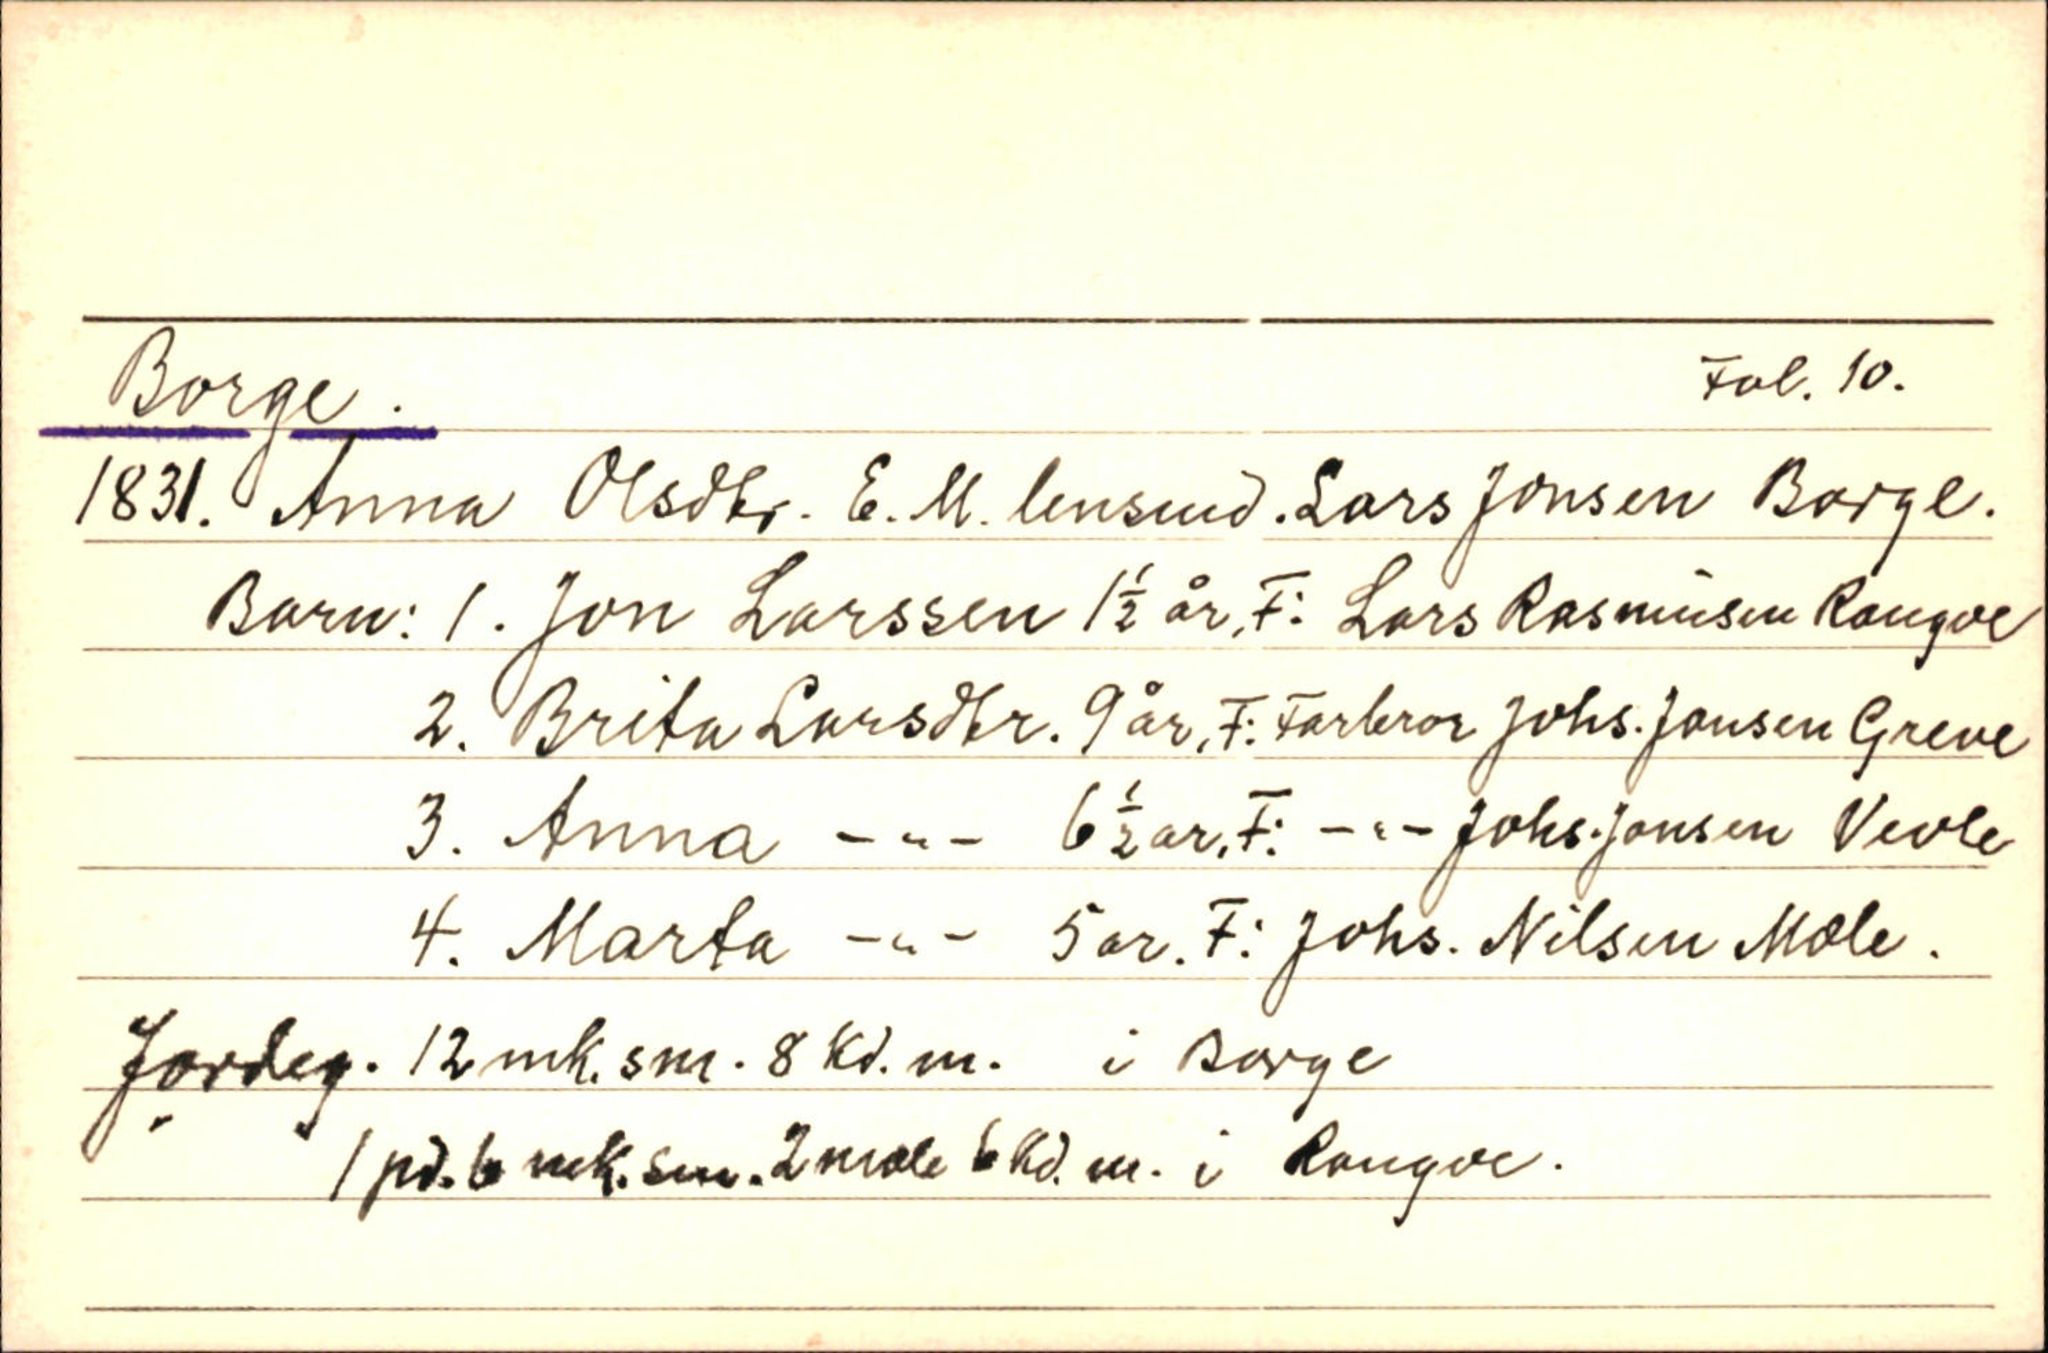 Borge. Fol. 10.
1831. Anna Olsdtr. E. M. lensmd. Lars Jonsen Borge.
Barn: 1. Jon Larssen 1½ år, F: Lars Rasmusen Rongve
2. Brita Larsdtr. 9 år, F: Farbror Johs. Jonsen Greve
3. Anna -"- 6½ ar, F: -"- Johs. Jonsen Vevle
4. Marta -"- 5 ar. F: Johs. Nilsen Mele.
Jordeg. 12 mk. sm. 8 kd. m. i Borge
1 pd. 6 mk. sm. 2 mæle 6 kd. m. i Rongve.